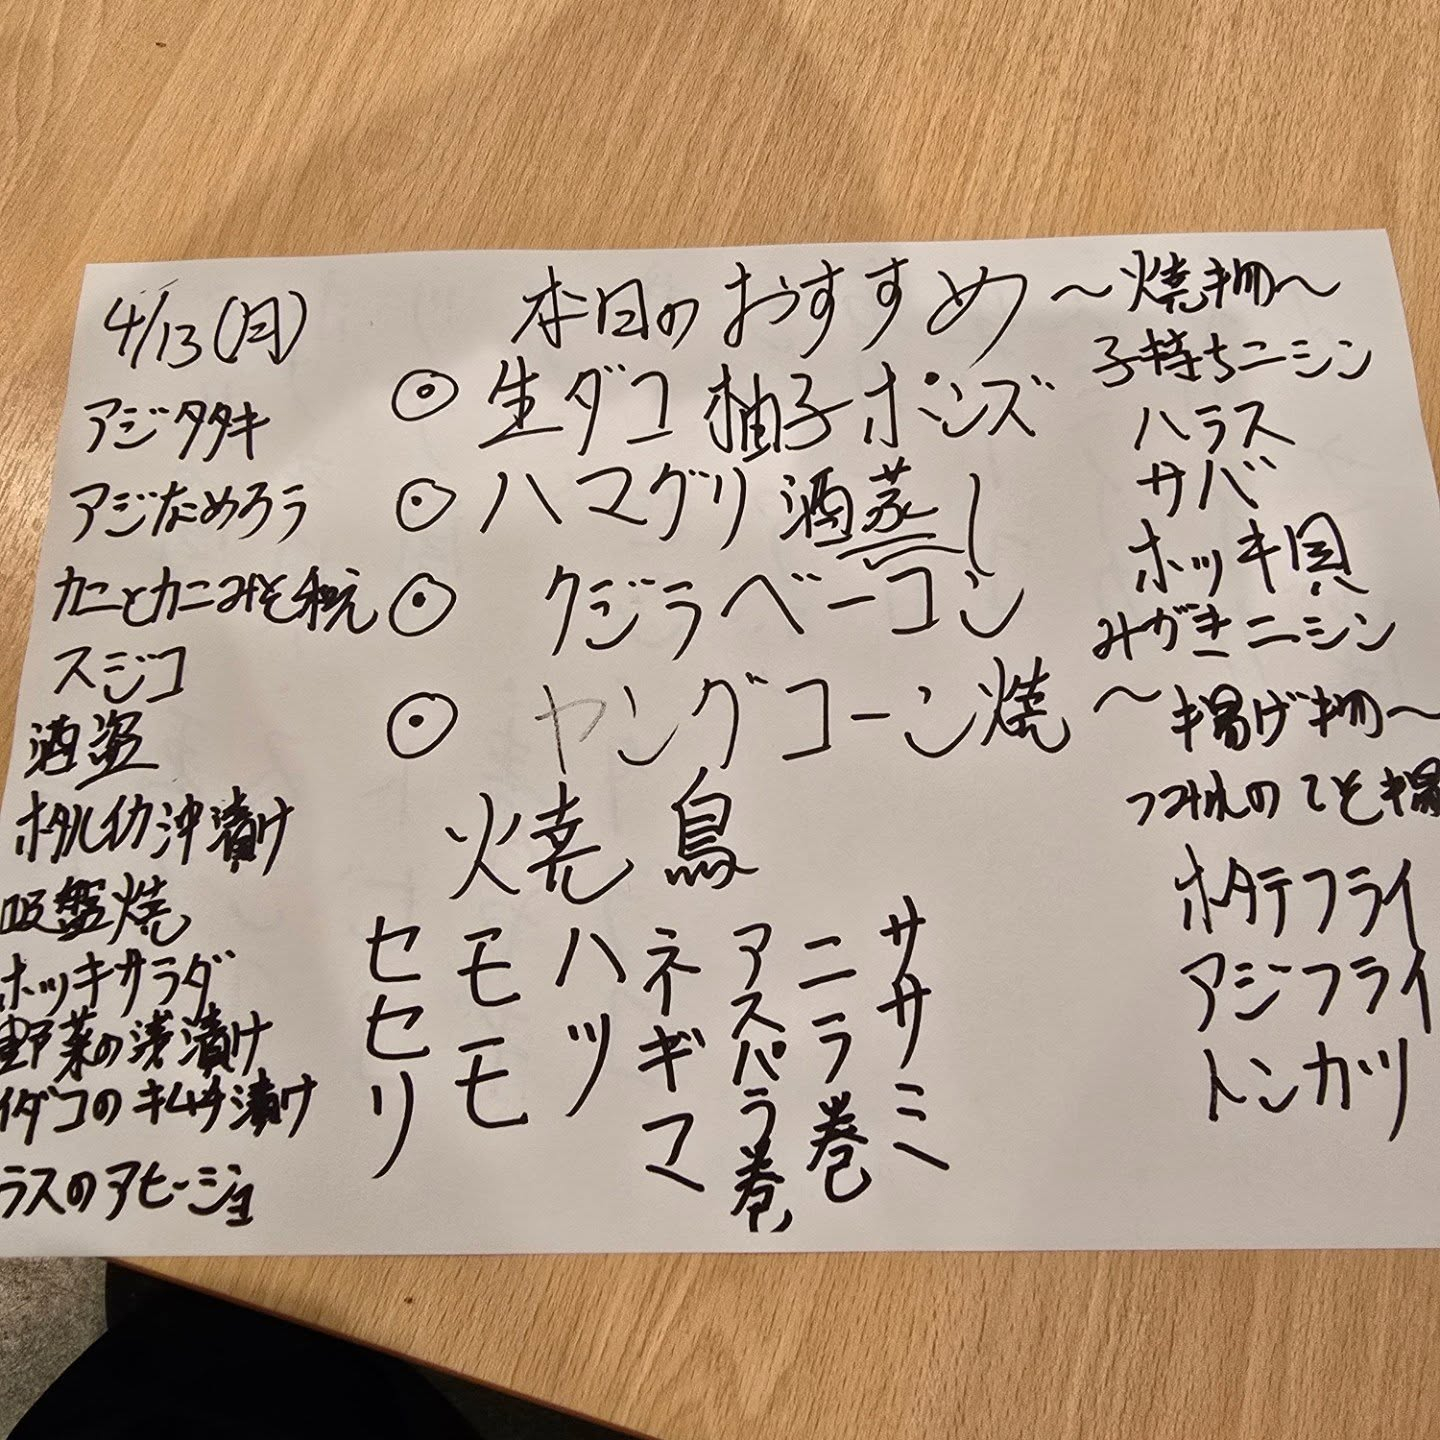 4/13(月)
アジタタキ
アジなめろう
カニとカニみそ和え
スジコ
酒盗
ホタルイカ沖漬け
吸盤焼
ホッキサラダ
野菜の浅漬け
イダコのキムチ漬け
ラスのアヒージョ
本日のおすすめ
◎生ダコ柚子ポンズ
◎ハマグリ酒蒸し
◎クジラベーコン
◎ヤングコーン焼
焼鳥
セセリ
モモ
ハツ
ネギマ
アスパラ巻
ニラ巻
ササミ
～焼物～
子持ちニシン
ハラス
サバ
ホッキ貝
みがきニシン
～揚げ物～
つみれのしそ揚
ホタテフライ
アジフライ
トンカツ